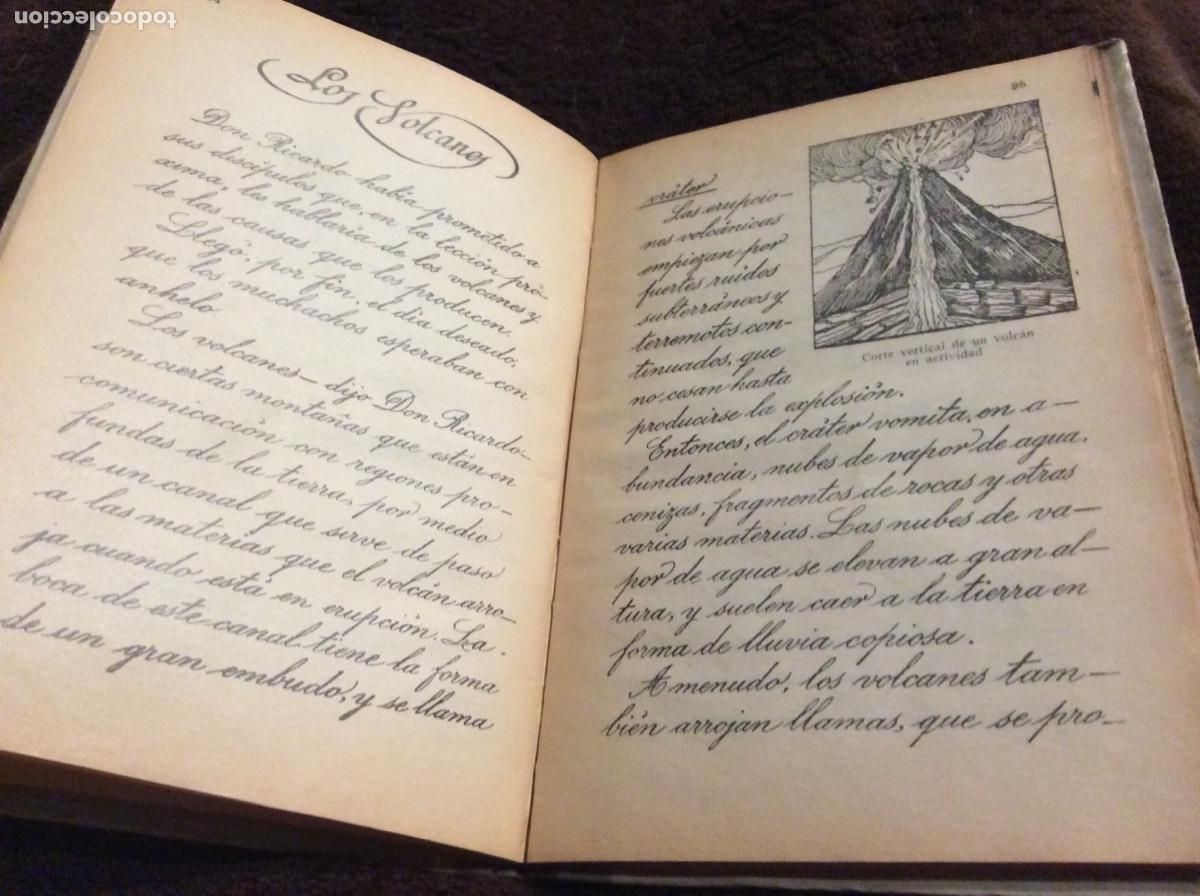 todocoleccion
Los Volcanes
Don Ricardo había prometido a
sus discípulos que, en la lección pró-
xima, les hablaría de los volcanes y
de las causas que los producen.
Llegó, por fin, el día deseado,
que los muchachos esperaban con
anhelo
Los volcanes—dijo Don Ricardo—
son ciertas montañas que están en
comunicación con regiones pro-
fundas de la tierra, por medio
de un canal que sirve de paso
a las materias que el volcán arro-
ja cuando está en erupción. La
boca de este canal tiene la forma
de un gran embudo, y se llama
95
cráter
Las erupcio-
nes volcánicas
empiezan por
fuertes ruidos
subterráneos y
terremotos con-
tinuados, que
no cesan hasta
producirse la explosión.
Corte vertical de un volcán
en actividad
Entonces, el cráter vomita, en a-
bundancia, nubes de vapor de agua,
cenizas, fragmentos de rocas y otras
varias materias. Las nubes de va-
por de agua se elevan a gran al-
tura, y suelen caer a la tierra en
forma de lluvia copiosa.
A menudo, los volcanes tam-
bién arrojan llamas, que se pro-